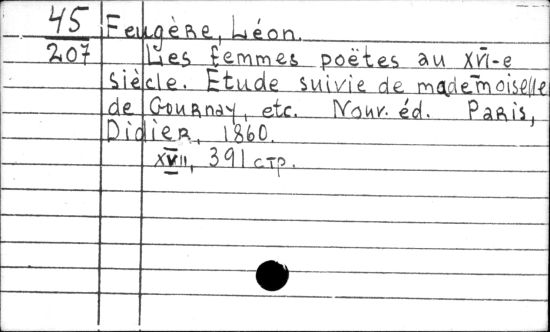 45 Feugère, Léon.
207 Les femmes poëtes au XVI-e
siècle. Etude suivie de mademoiselle
de Gournay, etc. Nouv. éd. Paris,
Didier, 1860.
XVII, 391 стр.